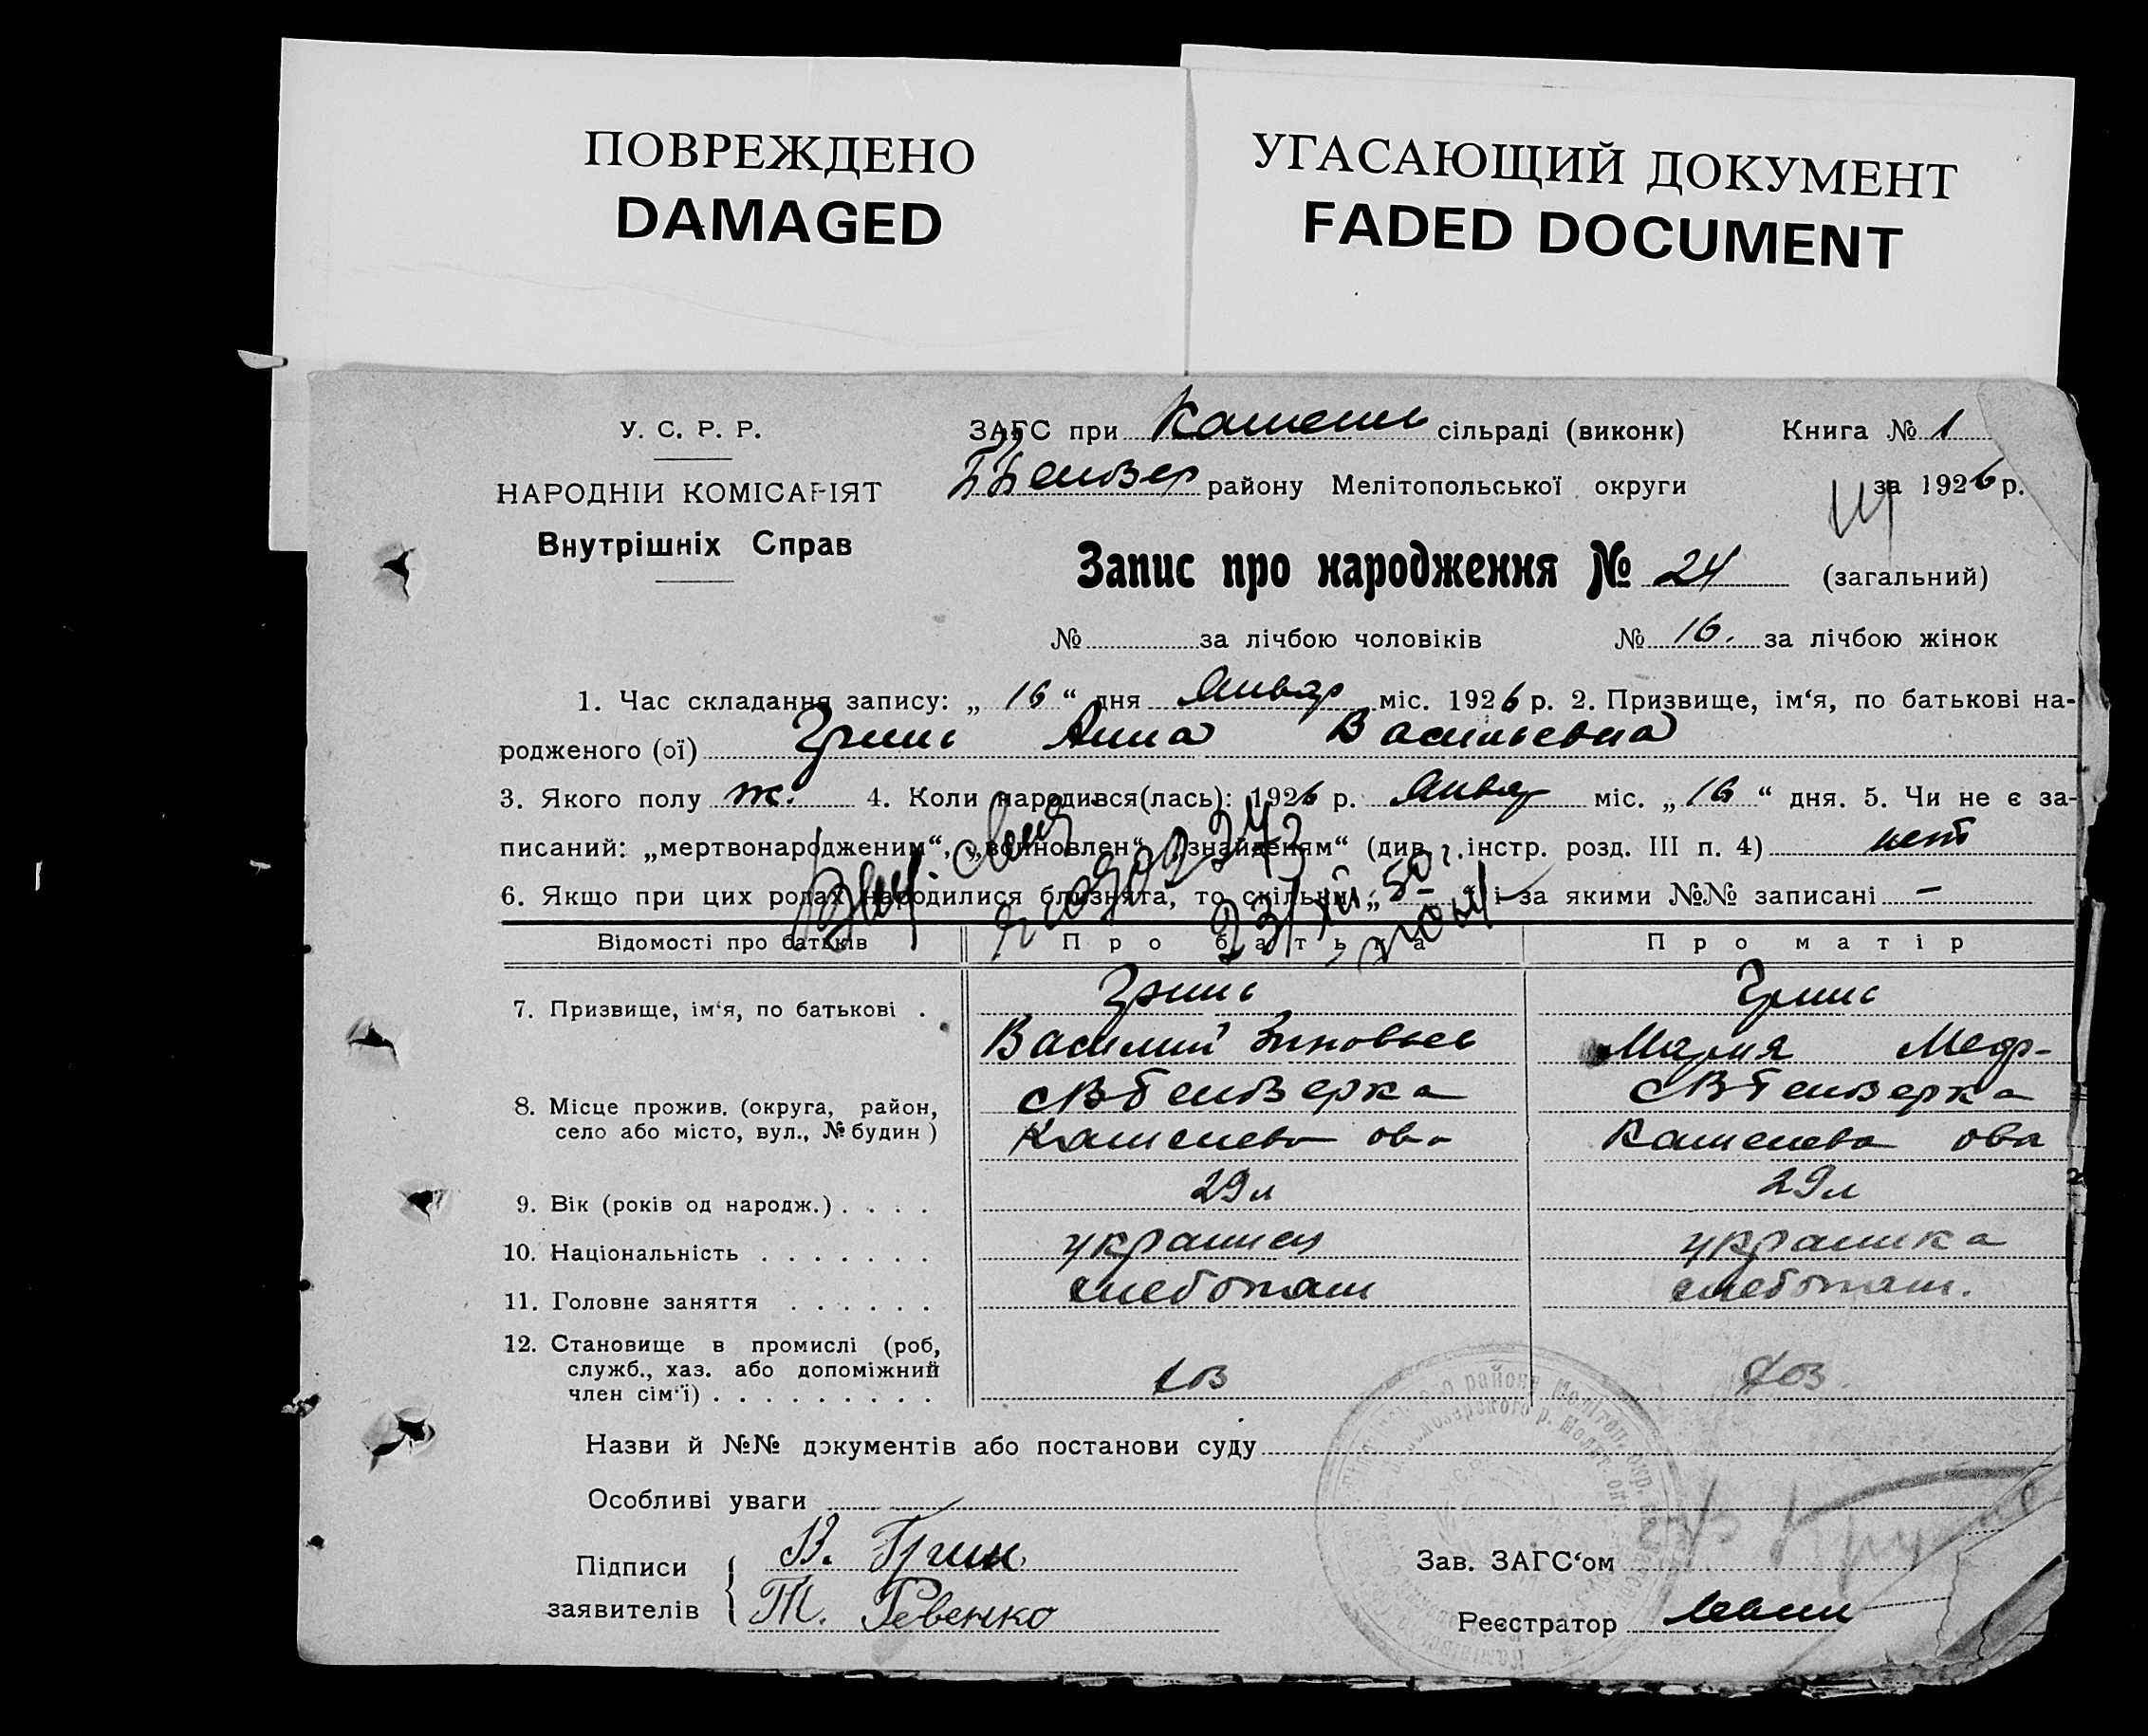 ПОВРЕЖДЕНО
DAMAGED
УГАСАЮЩИЙ ДОКУМЕНТ
FADED DOCUMENT
У. С. Р. Р.
НАРОДНІЙ КОМІСАРІЯТ
Внутрішніх Справ
ЗАГС при сільраді (виконк) Книга № 1
району Мелітопольської округи за 1926 р.
Запис про народження № 24 (загальний)
№ за лічбою чоловіків № 16. за лічбою жінок
1. Час складання запису: „ 16 “ дня Январ міс. 1926 р. 2. Призвище, ім‘я, по батькові на-
родженого (ої) Гринь Анна Васильевна
3. Якого полу ж. 4. Коли народився(лась): 1926 р. Январ міс. „ 16 “ дня. 5. Чи не є за-
писаний: „мертвонародженим“, „знайденям“ (див. інстр. розд. III п. 4) нет
6. Якщо при цих родах народилися близнята, то скільки „ і за якими №№ записані —
Відомості про батьків Про батька Про матір
7. Призвище, ім‘я, по батькові . Гринь Гринь
Василий Зиновьев Мария Меф-
8. Місце прожив. (округа, район,
село або місто, вул., № будин )
9. Вік (років од народж.) . . . . 29 л 29 л
10. Національність . . . . . . . украинец украинка
11. Головне заняття . . . . . . хлебопаш хлебопаш.
12. Становище в промислі (роб,
служб., хаз. або допоміжний
член сім‘ї) . . . . . . . . . хоз хоз.
Назви й №№ документів або постанови суду
Особливі уваги
Підписи
заявителів
В. Грин
Т. Ревенко
Зав. ЗАГС‘ом
Реєстратор